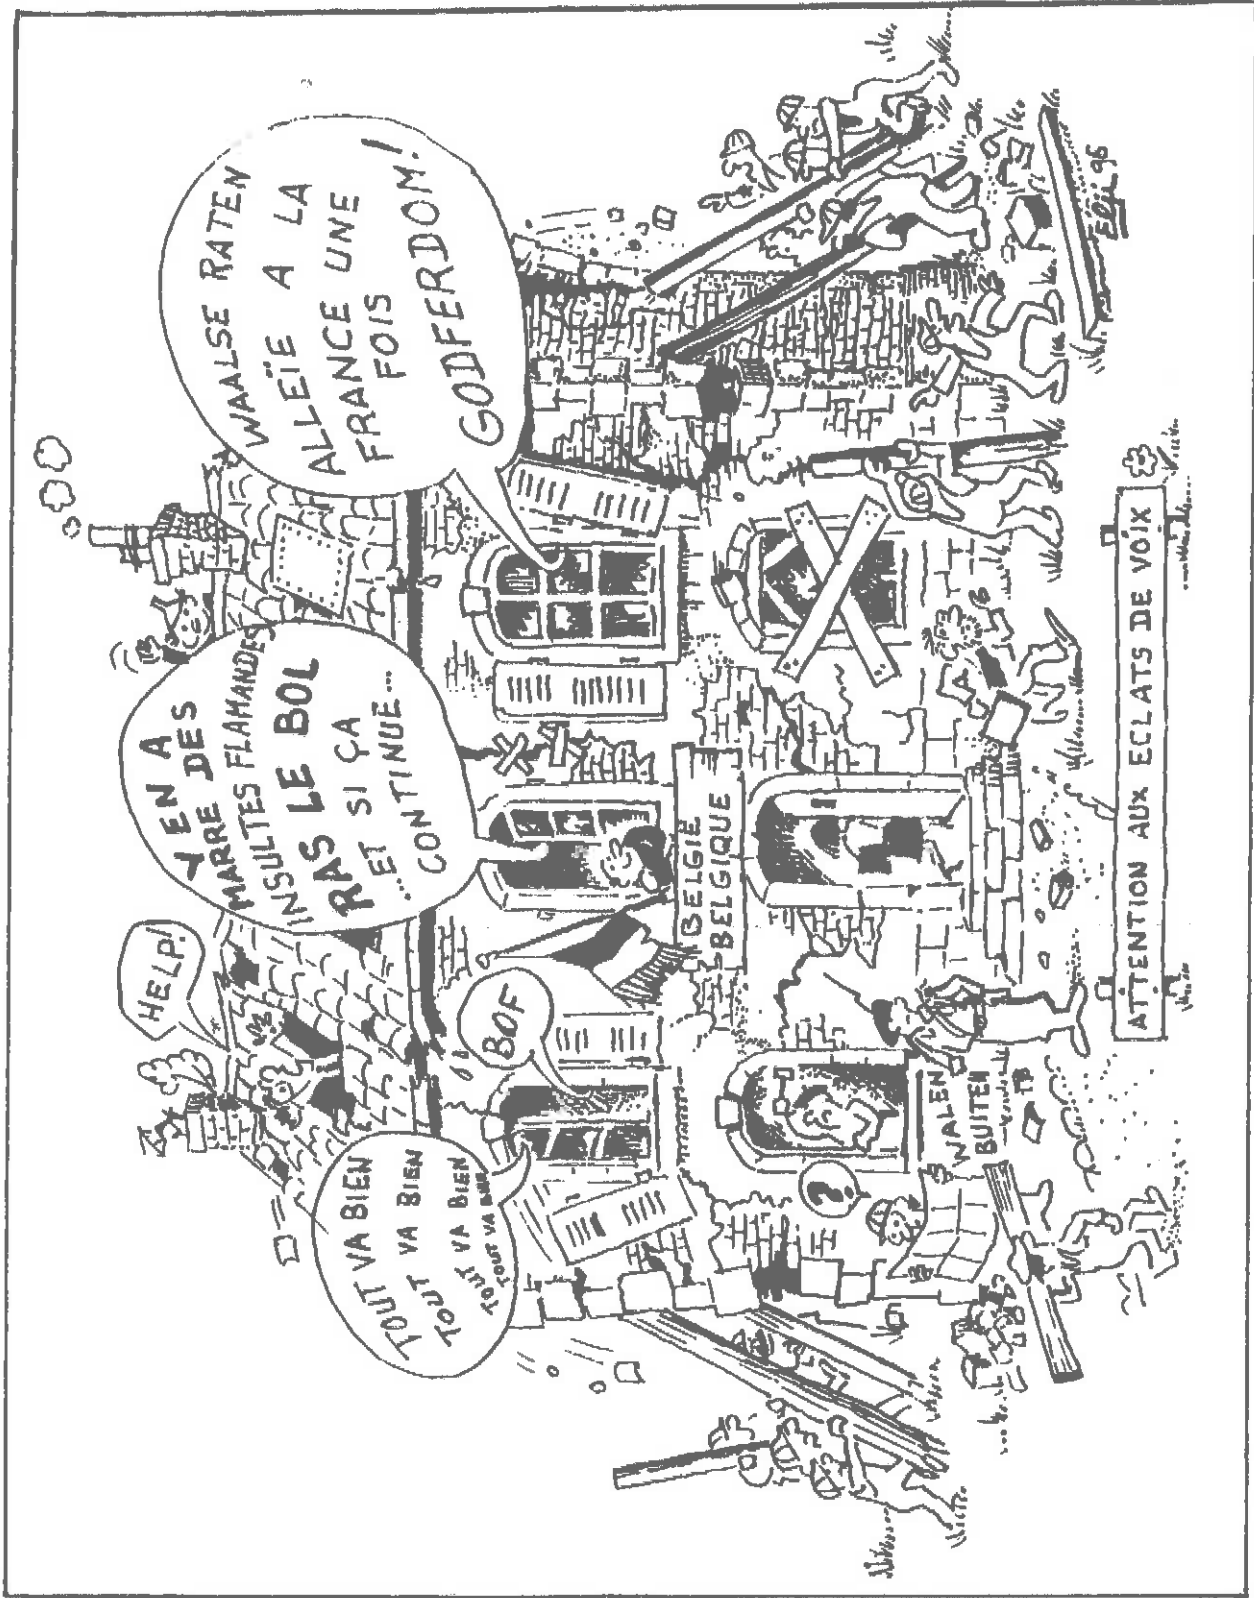 HELP!
TOUT VA BIEN
TOUT VA BIEN
TOUT VA BIEN
TOUT VA BIEN
BOF
Y EN A
MARRE DES
INSULTES FLAMANDES
RAS LE BOL
...ET SI ÇA
CONTINUE...
WAALSE RATEN
ALLEÏE A LA
FRANCE UNE
FOIS
GODFERDOM!
BELGIE
BELGIQUE
?
WALEN
BUITEN
ATTENTION AUX ECLATS DE VOIX
96